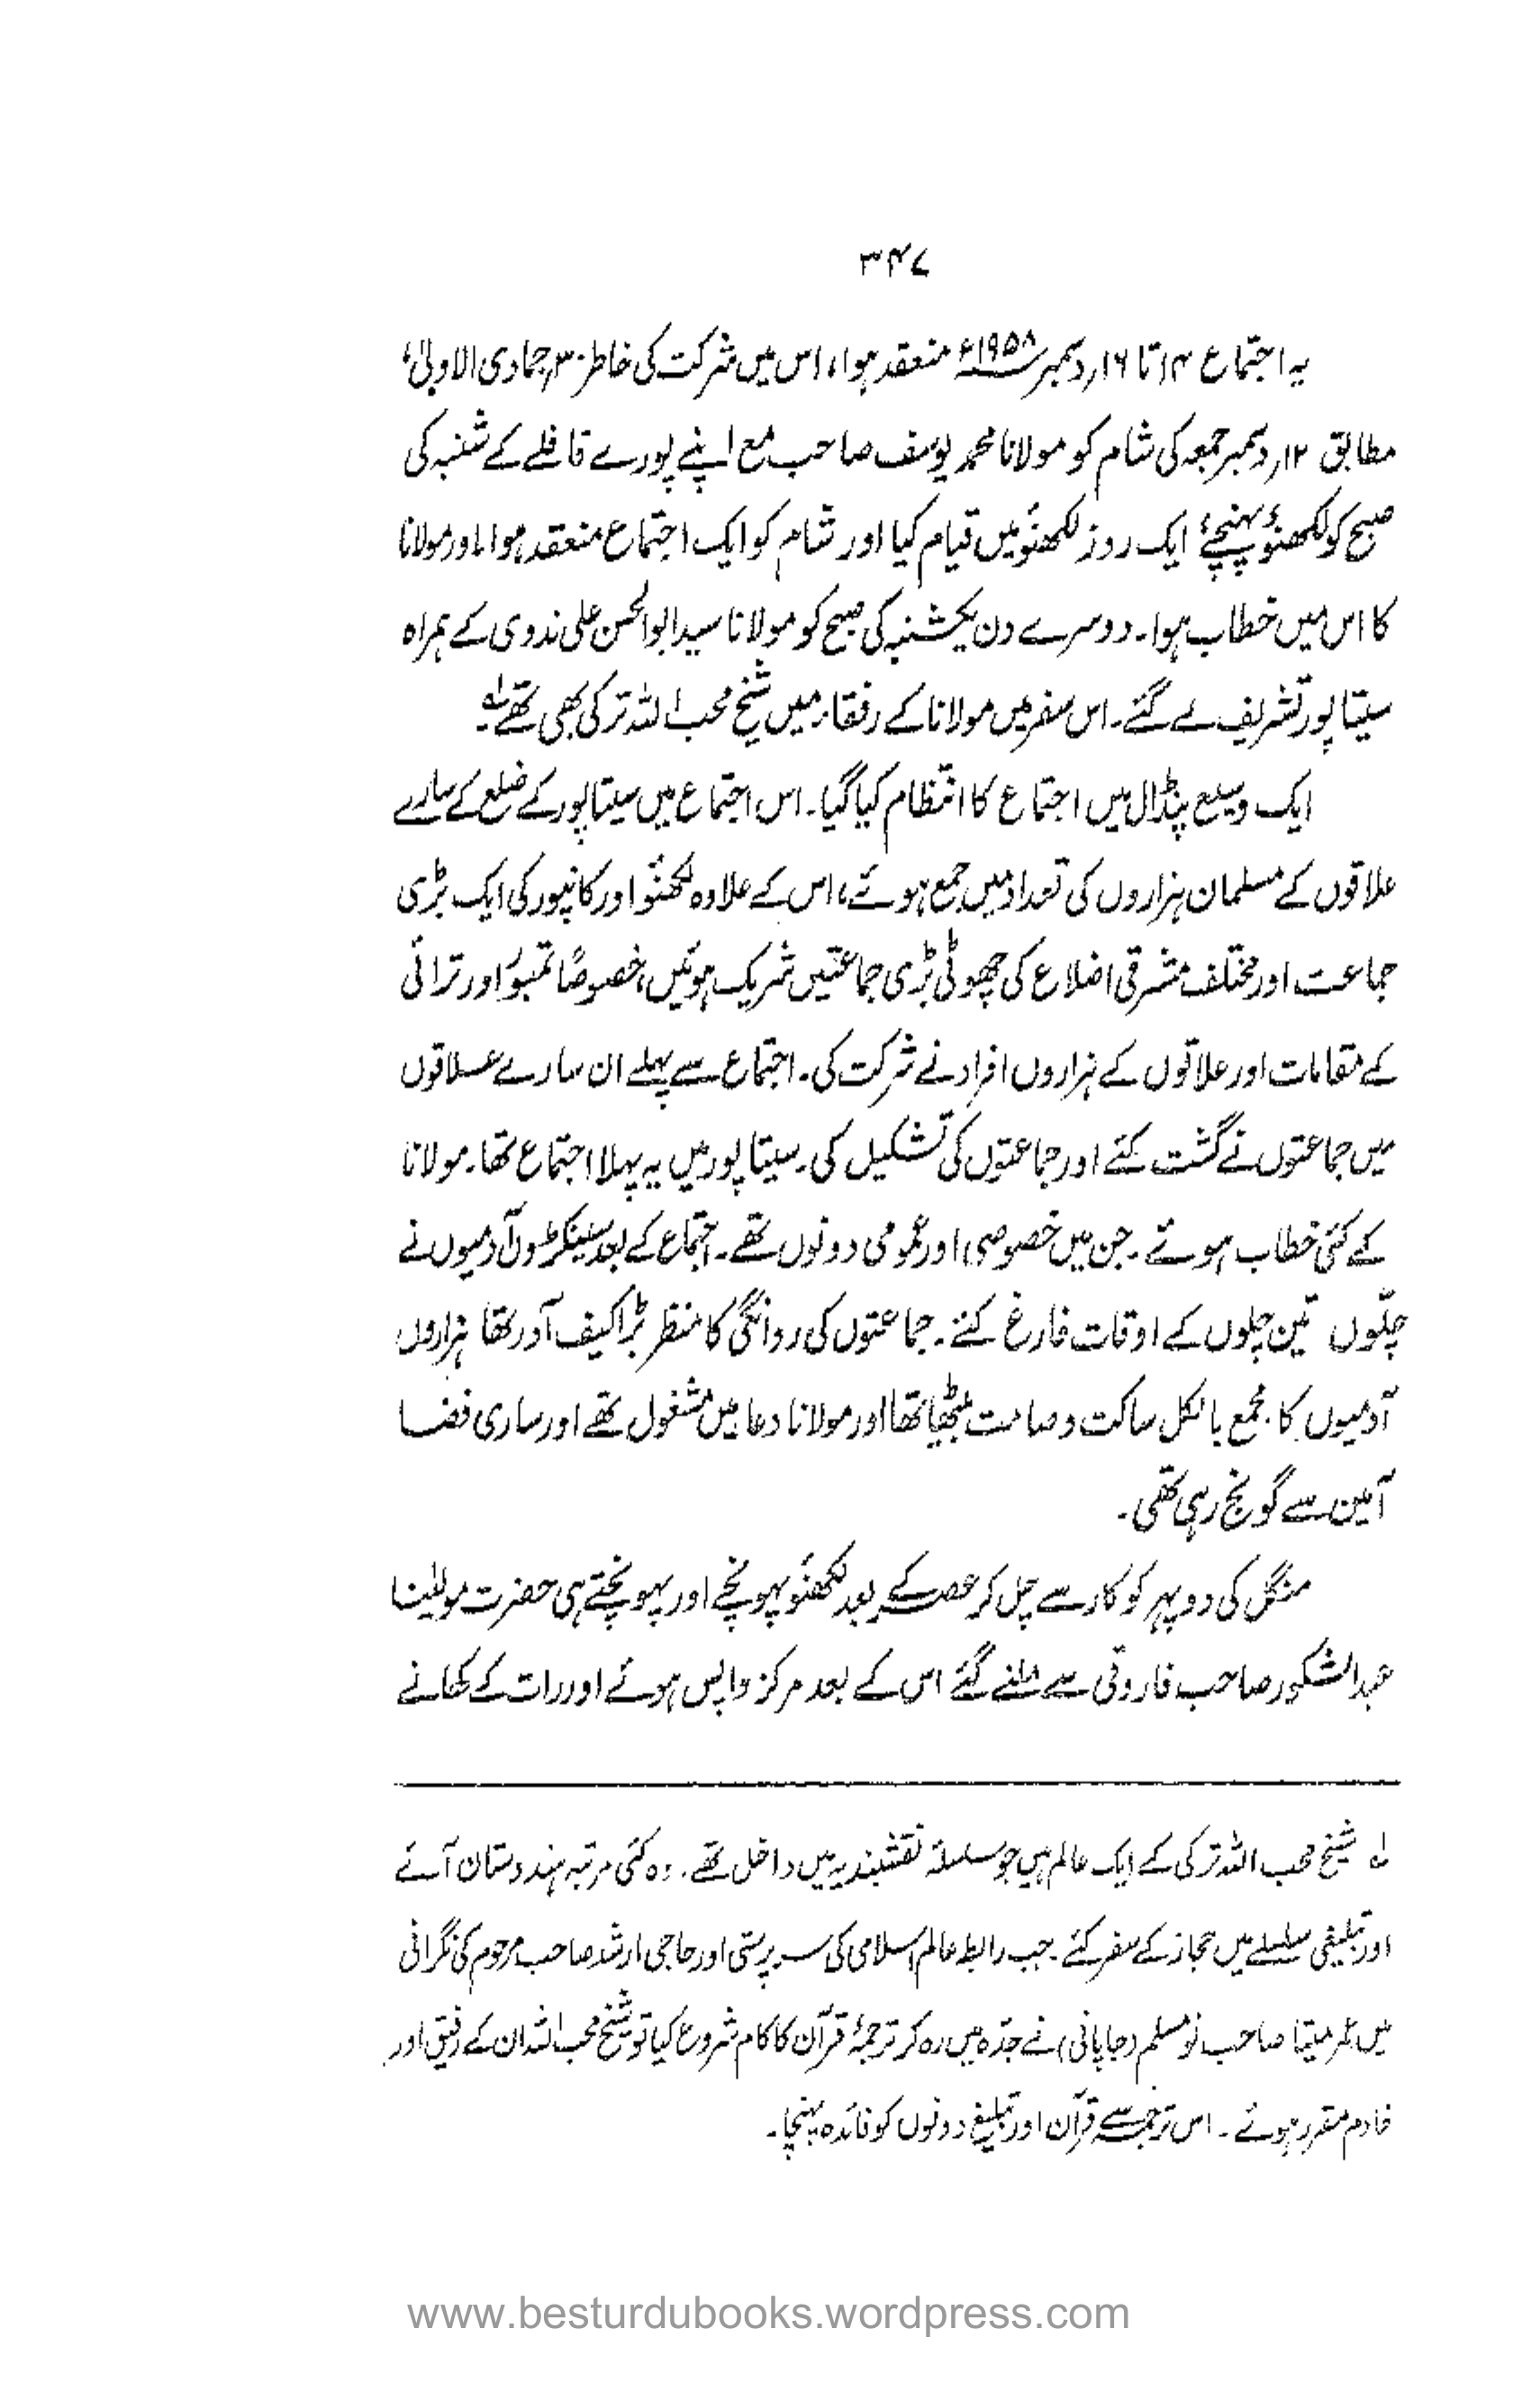 ۳۴۷
یہ اجتماع ۱۴ تا ۱۶؍دسمبر ۱۹۵۸ء منعقد ہوا، اس میں شرکت کی خاطر ۳۰؍جمادی الاولیٰ
مطابق ۱۲؍دسمبر جمعہ کی شام کو مولانا محمد یوسف صاحب مع اپنے پورے قافلے کے شنبہ کی
صبح کو لکھنؤ پہنچے، ایک روز لکھنؤ میں قیام کیا اور شام کو ایک اجتماع منعقد ہوا اور مولانا
کا اس میں خطاب ہوا۔ دوسرے دن یکشنبہ کی صبح کو مولانا سید ابوالحسن علی ندوی کے ہمراہ
سیتاپور تشریف لے گئے۔ اس سفر میں مولانا کے رفقاء میں شیخ محب اللہ ترکی بھی تھے لہ۔
ایک وسیع پنڈال میں اجتماع کا انتظام کیا گیا۔ اس اجتماع میں سیتاپور کے ضلع کے سارے
علاقوں کے مسلمان ہزاروں کی تعداد میں جمع ہوئے، اس کے علاوہ لکھنؤ اور کانپور کی ایک بڑی
جماعت اور مختلف مشرقی اضلاع کی چھوٹی بڑی جماعتیں شریک ہوئیں، خصوصاً تمبور اور ترائی
کے مقامات اور علاقوں کے ہزاروں افراد نے شرکت کی۔ اجتماع سے پہلے ان سارے علاقوں
میں جماعتوں نے گشت کئے اور جماعتوں کی تشکیل کی۔ سیتاپور میں یہ پہلا اجتماع تھا۔ مولانا
کے کئی خطاب ہوئے۔ جن میں خصوصی اور عمومی دونوں تھے۔ اجتماع کے بعد سینکڑوں آدمیوں نے
چلّوں تین چلوں کے اوقات فارغ کئے۔ جماعتوں کی روانگی کا منظر بڑا کیف آور تھا ہزاروں
آدمیوں کا مجمع بالکل ساکت و صامت بیٹھا تھا اور مولانا دعا میں مشغول تھے اور ساری فضا
آمین سے گونج رہی تھی۔
منگل کی دوپہر کو کار سے چل کر عصر کے بعد لکھنؤ پہونچے اور پہونچتے ہی حضرت مولٰینا
عبدالشکور صاحب فاروقی سے ملنے گئے اس کے بعد مرکز واپس ہوئے اور رات کے کھانے
لہ شیخ محب اللہ ترکی کے ایک عالم ہیں جو سلسلۂ نقشبندیہ میں داخل تھے۔ وہ کئی مرتبہ ہندوستان آئے
اور تبلیغی سلسلے میں حجاز کے سفر کئے۔ جب رابطہ عالم اسلامی کی سرپرستی اور حاجی ارشد صاحب مرحوم کی نگرانی
میں عمر میتا صاحب نومسلم (جاپانی) نے جدّہ میں رہ کر ترجمۂ قرآن کا کام شروع کیا تو شیخ محب اللہ ان کے رفیق اور
خادم مقرر ہوئے۔ اس ترجمے سے قرآن اور تبلیغ دونوں کو فائدہ پہنچا۔
www.besturdubooks.wordpress.com